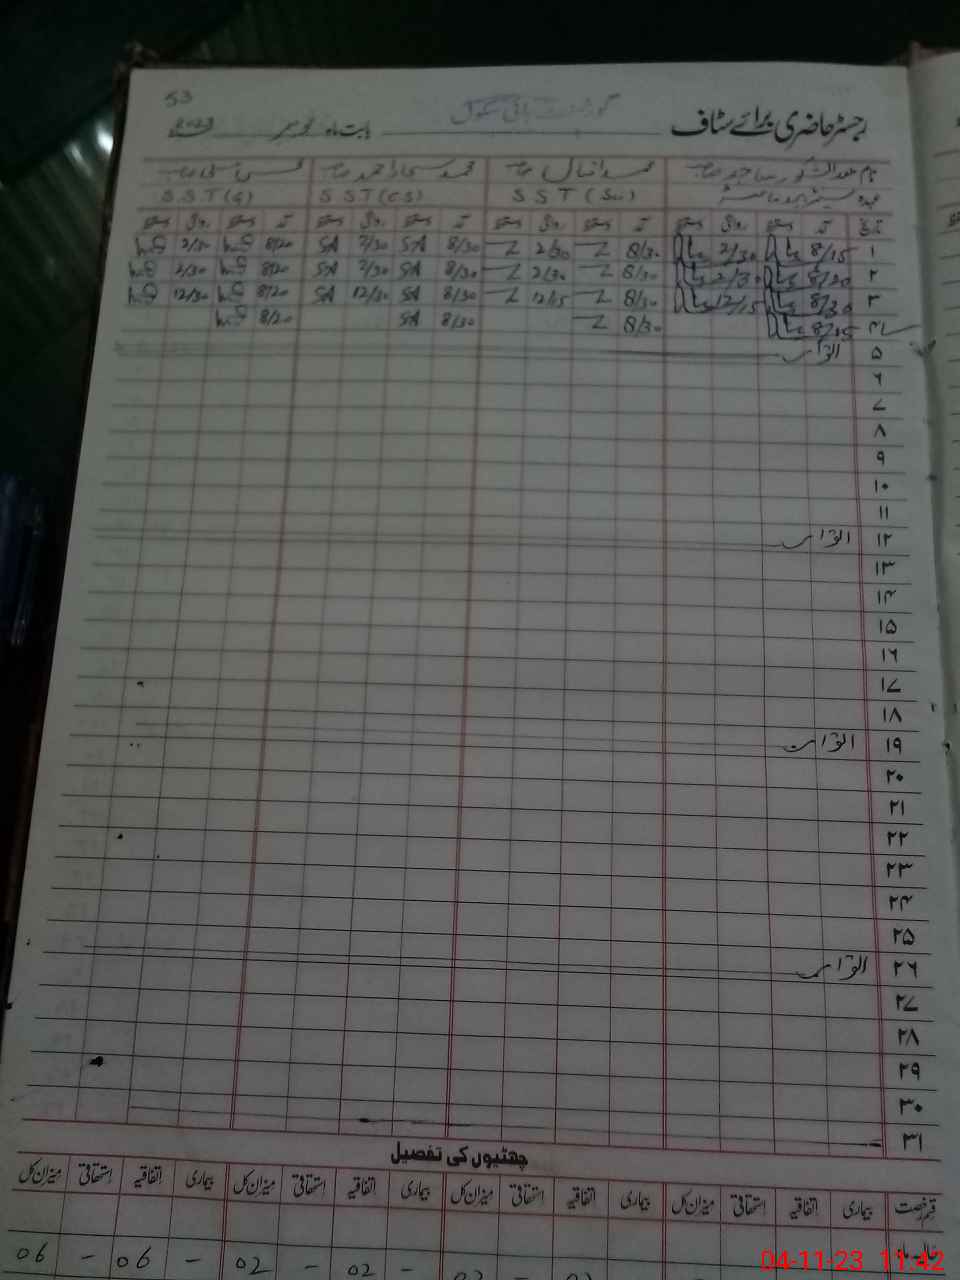 53
رجسٹر حاضری برائے سٹاف گورنمنٹ ہائی سکول بابت ماہ نومبر 2023
نام
عہدہ S S T (Sci) S S T (CS) S S T (G)
تاریخ آمد دستخط روانگی دستخط آمد دستخط روانگی دستخط آمد دستخط روانگی دستخط آمد دستخط روانگی دستخط
۱ 8/15 2/30 8/30 2/30 8/30 SA 2/30 SA 8/20 2/30
۲ 8/20 2/30 8/30 2/30 8/30 SA 2/30 SA 8/20 2/30
۳ 8/30 12/15 8/30 12/15 8/30 SA 12/30 SA 8/20 12/30
۴ 8/15 8/30 8/30 SA 8/20
۵ اتوار
۶
۷
۸
۹
۱۰
۱۱
۱۲ اتوار
۱۳
۱۴
۱۵
۱۶
۱۷
۱۸
۱۹ اتوار
۲۰
۲۱
۲۲
۲۳
۲۴
۲۵
۲۶ اتوار
۲۷
۲۸
۲۹
۳۰
۳۱
چھٹیوں کی تفصیل
قسم رخصت بیماری اتفاقیہ استحقاقی میزان کل بیماری اتفاقیہ استحقاقی میزان کل بیماری اتفاقیہ استحقاقی میزان کل بیماری اتفاقیہ استحقاقی میزان کل
حالیہ ماہ - 02 - 02 - 06 - 06
04-11-23 11:42